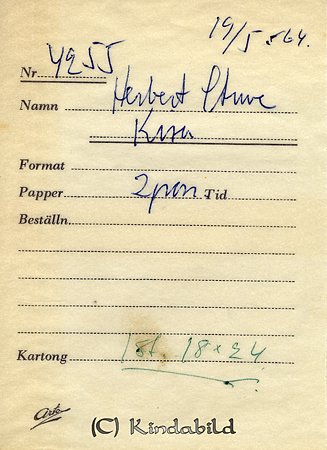 19/5-64.
Nr 4255
Namn Herbert Stuve
Kisa
Format
Papper 2 prov Tid
Beställn.
Kartong 1 st. 18×24
Arto
(C) Kindabild